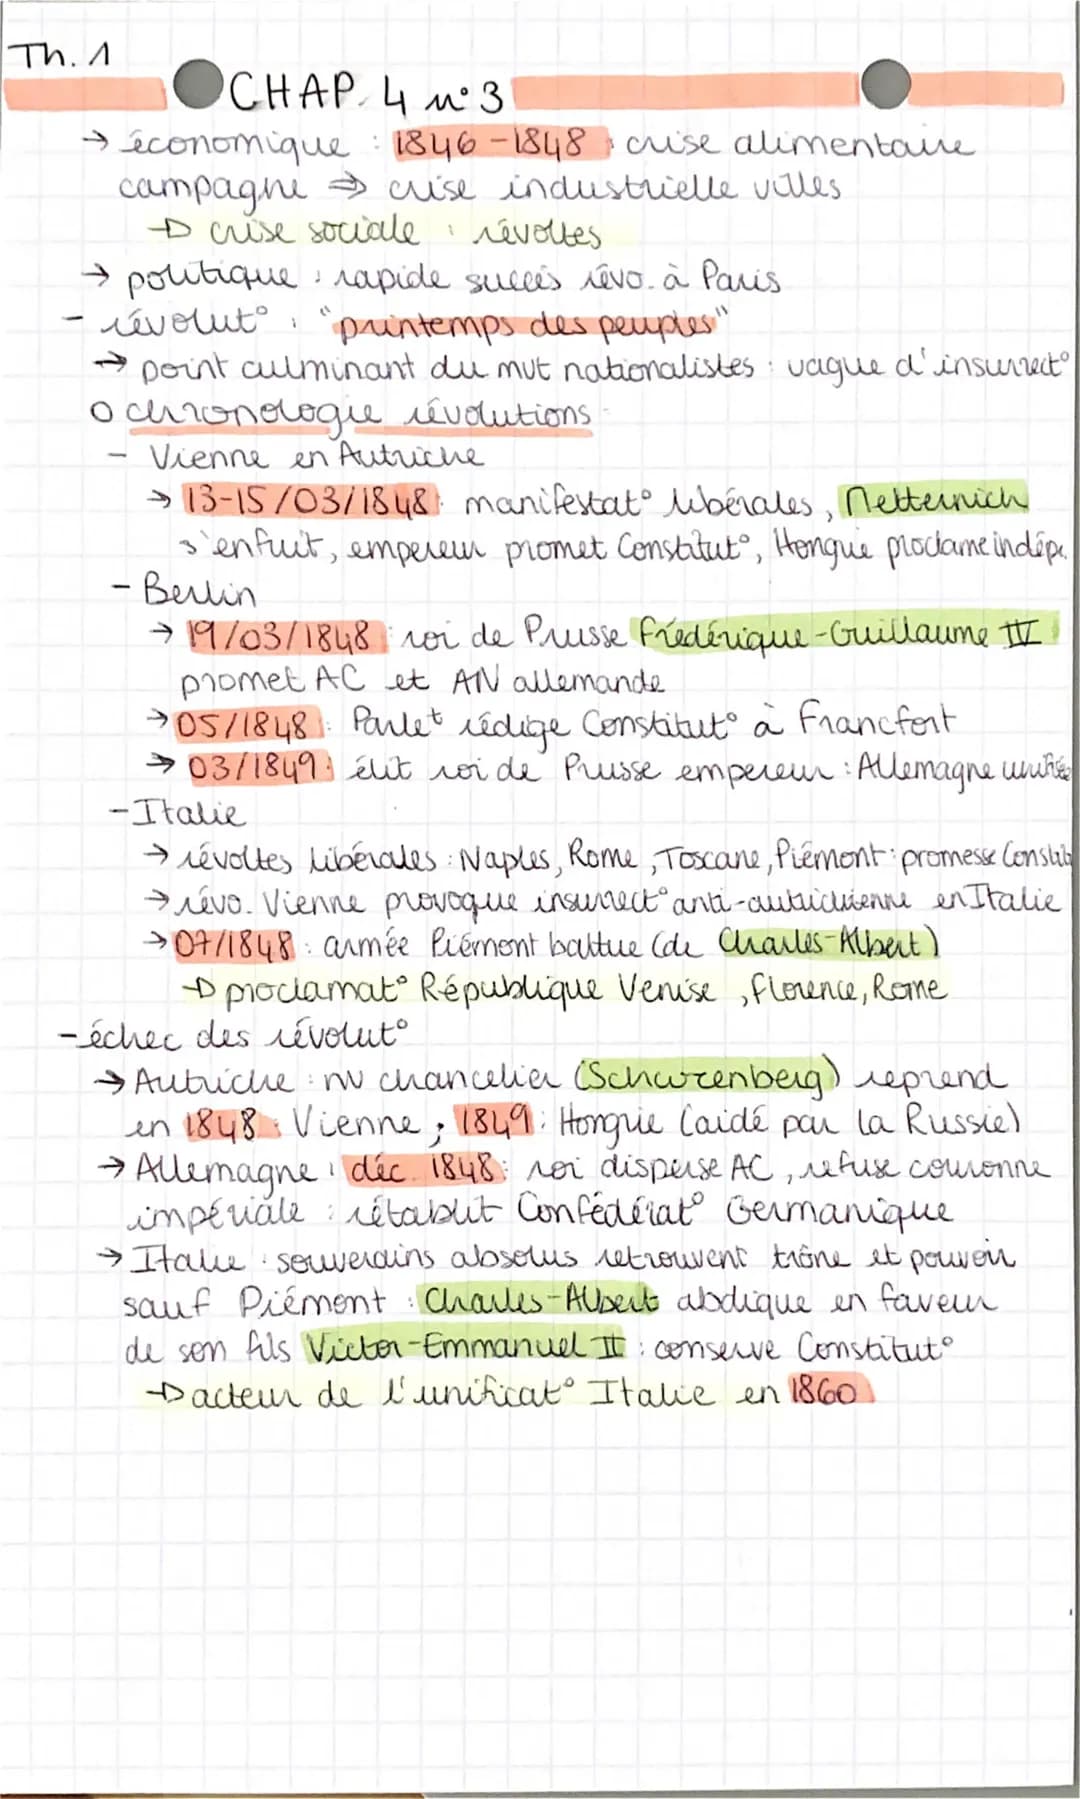 Th. 1
CHAP. 4 n°3
→ économique : 1846-1848 : crise alimentaire
campagne ⇒ crise industrielle villes
→ crise sociale : révoltes
→ politique : rapide succès révo. à Paris
- révolut° : "printemps des peuples"
→ point culminant du mvt nationalistes : vague d'insurrect°
o chronologie révolutions
- Vienne en Autriche
→ 13-15/03/1848 : manifestat° libérales, Metternich
s'enfuit, empereur promet Constitut°, Hongrie proclame indépe.
- Berlin
→ 19/03/1848 : roi de Prusse Frédérique-Guillaume IV
promet AC et AN allemande
→ 05/1848 : Parlet rédige Constitut° à Francfort
→ 03/1849 : élit roi de Prusse empereur : Allemagne unifiée
- Italie
→ révoltes libérales : Naples, Rome, Toscane, Piémont : promesse Constit
→ révo. Vienne provoque insurrect° anti-autrichienne en Italie
→ 07/1848 : armée Piémont battue (de Charles-Albert)
→ proclamat° République Venise, Florence, Rome
- échec des révolut°
→ Autriche : nv chancelier (Schwrzenberg) reprend
en 1848 : Vienne ; 1849 : Hongrie (aidé par la Russie)
→ Allemagne : déc. 1848 : roi disperse AC, refuse couronne
impériale : rétablit Confédérat° Germanique
→ Italie : souverains absolus retrouvent trône et pouvoir
sauf Piémont : Charles-Albert abdique en faveur
de son fils Victor-Emmanuel II : conserve Constitut°
→ acteur de l'unificat° Italie en 1860